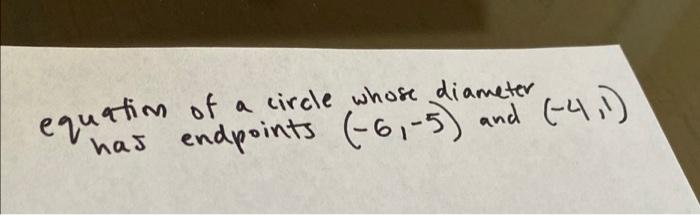 equation of a circle whose diameter
has endpoints (-6,-5) and (-4,1)